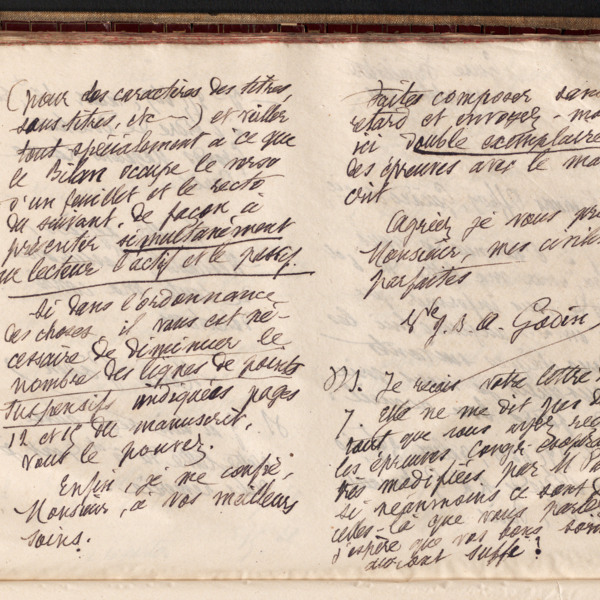 (pour des caractères des titres,
sous titres, etc —) et veiller
tout spécialement à ce que
le Bilan occupe le verso
d'un feuillet et le recto
du suivant, de façon à
présenter simultanément
au lecteur l'actif et le passif.
Si dans l'ordonnance
des choses, il vous est né-
cessaire de diminuer le
nombre des lignes de points
suspensifs indiquées pages
12 et 15 du manuscrit,
vous le pouvez.
Enfin, je me confie,
Monsieur, à vos meilleurs
soins.
Faites composer sans
retard et envoyez-moi
ici double exemplaire
des épreuves avec le manus
crit
Agréez je vous pr
Monsieur, mes civili
parfaites
Vve J. B. A. Godin
P.S. Je reçois votre lettre
7. Elle ne me dit pas d
tout que vous ayez reç
les épreuves Congr. coopéra
très modifiées par M
si néanmoins ce sont
celles-là que vous parlez
j'espère que vos bons soins
auront suffi!